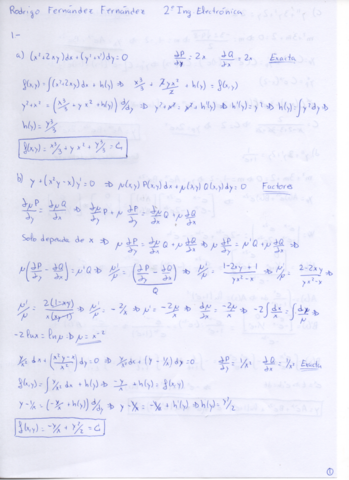 Rodrigo Fernández Fernández 2º Ing Electrónica
1.-
a) (x²+2xy)dx + (y²+x²)dy = 0 ∂P/∂y = 2x ∂Q/∂x = 2x Exacta
f(x,y) = ∫(x²+2xy)dx + h(y) ⇒ x³/3 + 2yx²/2 + h(y) = f(x,y)
y²+x² = (x³/3 + yx² + h(y)) d/dy ⇒ y²+x² = x² + h'(y) ⇒ h'(y) = y² ⇒ h(y) = ∫y²dy ⇒
h(y) = y³/3
f(x,y) = x³/3 + yx² + y³/3 = C₁
b) y + (x²y-x)y' = 0 ⇒ μ(x,y) P(x,y)dx + μ(x,y) Q(x,y)dy = 0 Factores
∂μP/∂y = ∂μQ/∂x ⇒ ∂μ/∂y P + μ ∂P/∂y = ∂μ/∂x Q + μ ∂Q/∂x
Solo depende de x ⇒ μ ∂P/∂y = ∂μ/∂x Q + μ ∂Q/∂x ⇒ μ ∂P/∂y = μ'Q + μ ∂Q/∂x ⇒
μ(∂P/∂y - ∂Q/∂x) = μ'Q ⇒ μ'/μ = (∂P/∂y - ∂Q/∂x)/Q ⇒ μ'/μ = (1-2xy+1)/(yx²-x) ⇒ μ'/μ = (2-2xy)/(yx²-x) ⇒
μ'/μ = 2(1-xy)/x(xy-1) ⇒ μ'/μ = -2/x ⇒ μ' = -2μ/x ⇒ dμ/dx = -2μ/x ⇒ -2∫dx/x = ∫dμ/μ ⇒
-2 ln x = ln μ ⇒ μ = x⁻²
y/x² dx + (x²y-x/x²)dy = 0 ⇒ y/x² dx + (y - 1/x)dy = 0 ∂P/∂y = 1/x² ∂Q/∂x = 1/x² Exacta
f(x,y) = ∫y/x² dx + h(y) ⇒ -y/x + h(y) = f(x,y)
y - 1/x = (-y/x + h(y)) d/dy ⇒ y - 1/x = -1/x + h'(y) ⇒ h(y) = y²/2
f(x,y) = -y/x + y²/2 = C₁
①